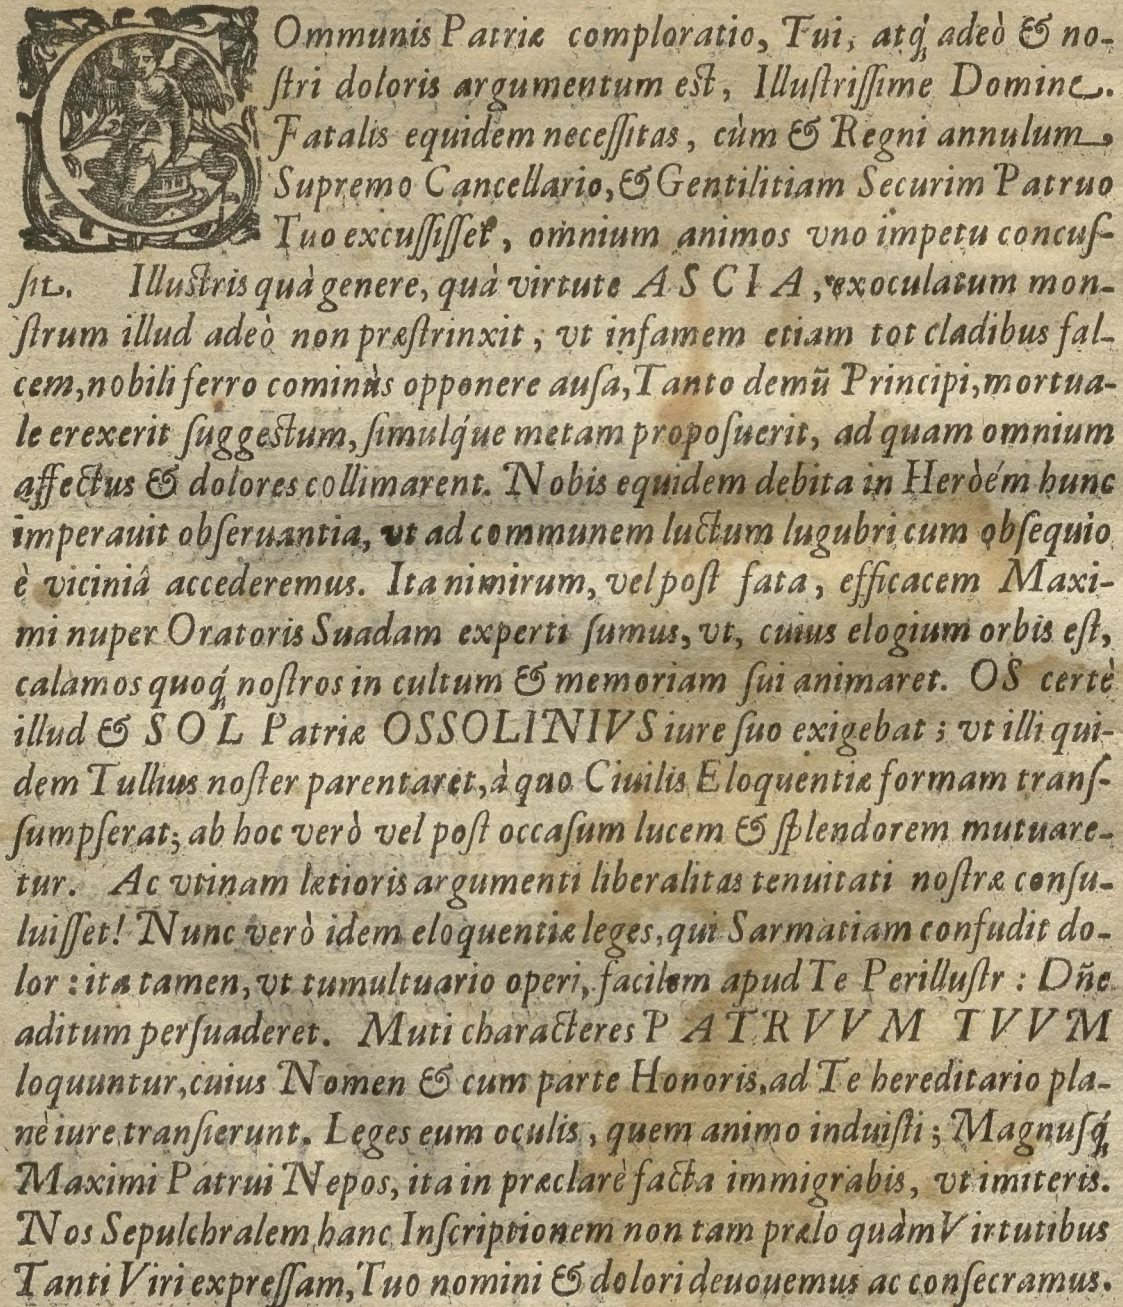 COmmunis Patriæ comploratio, Tui, atq́; adeò & no-
ſtri doloris argumentum est, Illuſtriſſime Domine.
Fatalis equidem neceſſitas, cùm & Regni annulum,
Supremo Cancellario, & Gentilitiam Securim Patruo
Tuo excuſſiſſet, omnium animos vno impetu concuſ-
ſit. Illustris quà genere, quà virtute ASCIA, exoculatum mon-
ſtrum illud adeò non præſtrinxit; vt infamem etiam tot cladibus fal-
cem, nobili ferro cominùs opponere auſa, Tanto demũ Principi, mortua-
le erexerit ſuggestum, ſimulq́ue metam propoſuerit, ad quam omnium
affectus & dolores collimarent. Nobis equidem debita in Heròém hunc
imperauit obſeruantia, vt ad communem luctum lugubri cum obſequio
è viciniâ accederemus. Ita nimirum, vel poſt fata, efficacem Maxi-
mi nuper Oratoris Suadam experti ſumus, vt, cuius elogium orbis eſt,
calamos quoq́; noſtros in cultum & memoriam ſui animaret. OS certè
illud & SOL Patriæ OSSOLINIVS iure ſuo exigebat; vt illi qui-
dem Tullius noſter parentaret, à quo Ciuilis Eloquentiæ formam tranſ-
ſumpſerat; ab hoc verò vel poſt occaſum lucem & ſplendorem mutuare-
tur. Ac vtinam lætioris argumenti liberalitas tenuitati noſtræ conſu-
luiſſet! Nunc verò idem eloquentiæ leges, qui Sarmatiam confudit do-
lor: ita tamen, vt tumultuario operi, facilem apud Te Perilluſtr: Dñe
aditum perſuaderet. Muti characteres PATRVVM TVVM
loquuntur, cuius Nomen & cum parte Honoris, ad Te hereditario pla-
nè iure tranſierunt. Leges eum oculis, quem animo induiſti; Magnuſq́;
Maximi Patrui Nepos, ita in præclarè facta immigrabis, vt imiteris.
Nos Sepulchralem hanc Inſcriptionem non tam prælo quàm Virtutibus
Tanti Viri expreſſam, Tuo nomini & dolori deuouemus ac conſecramus.